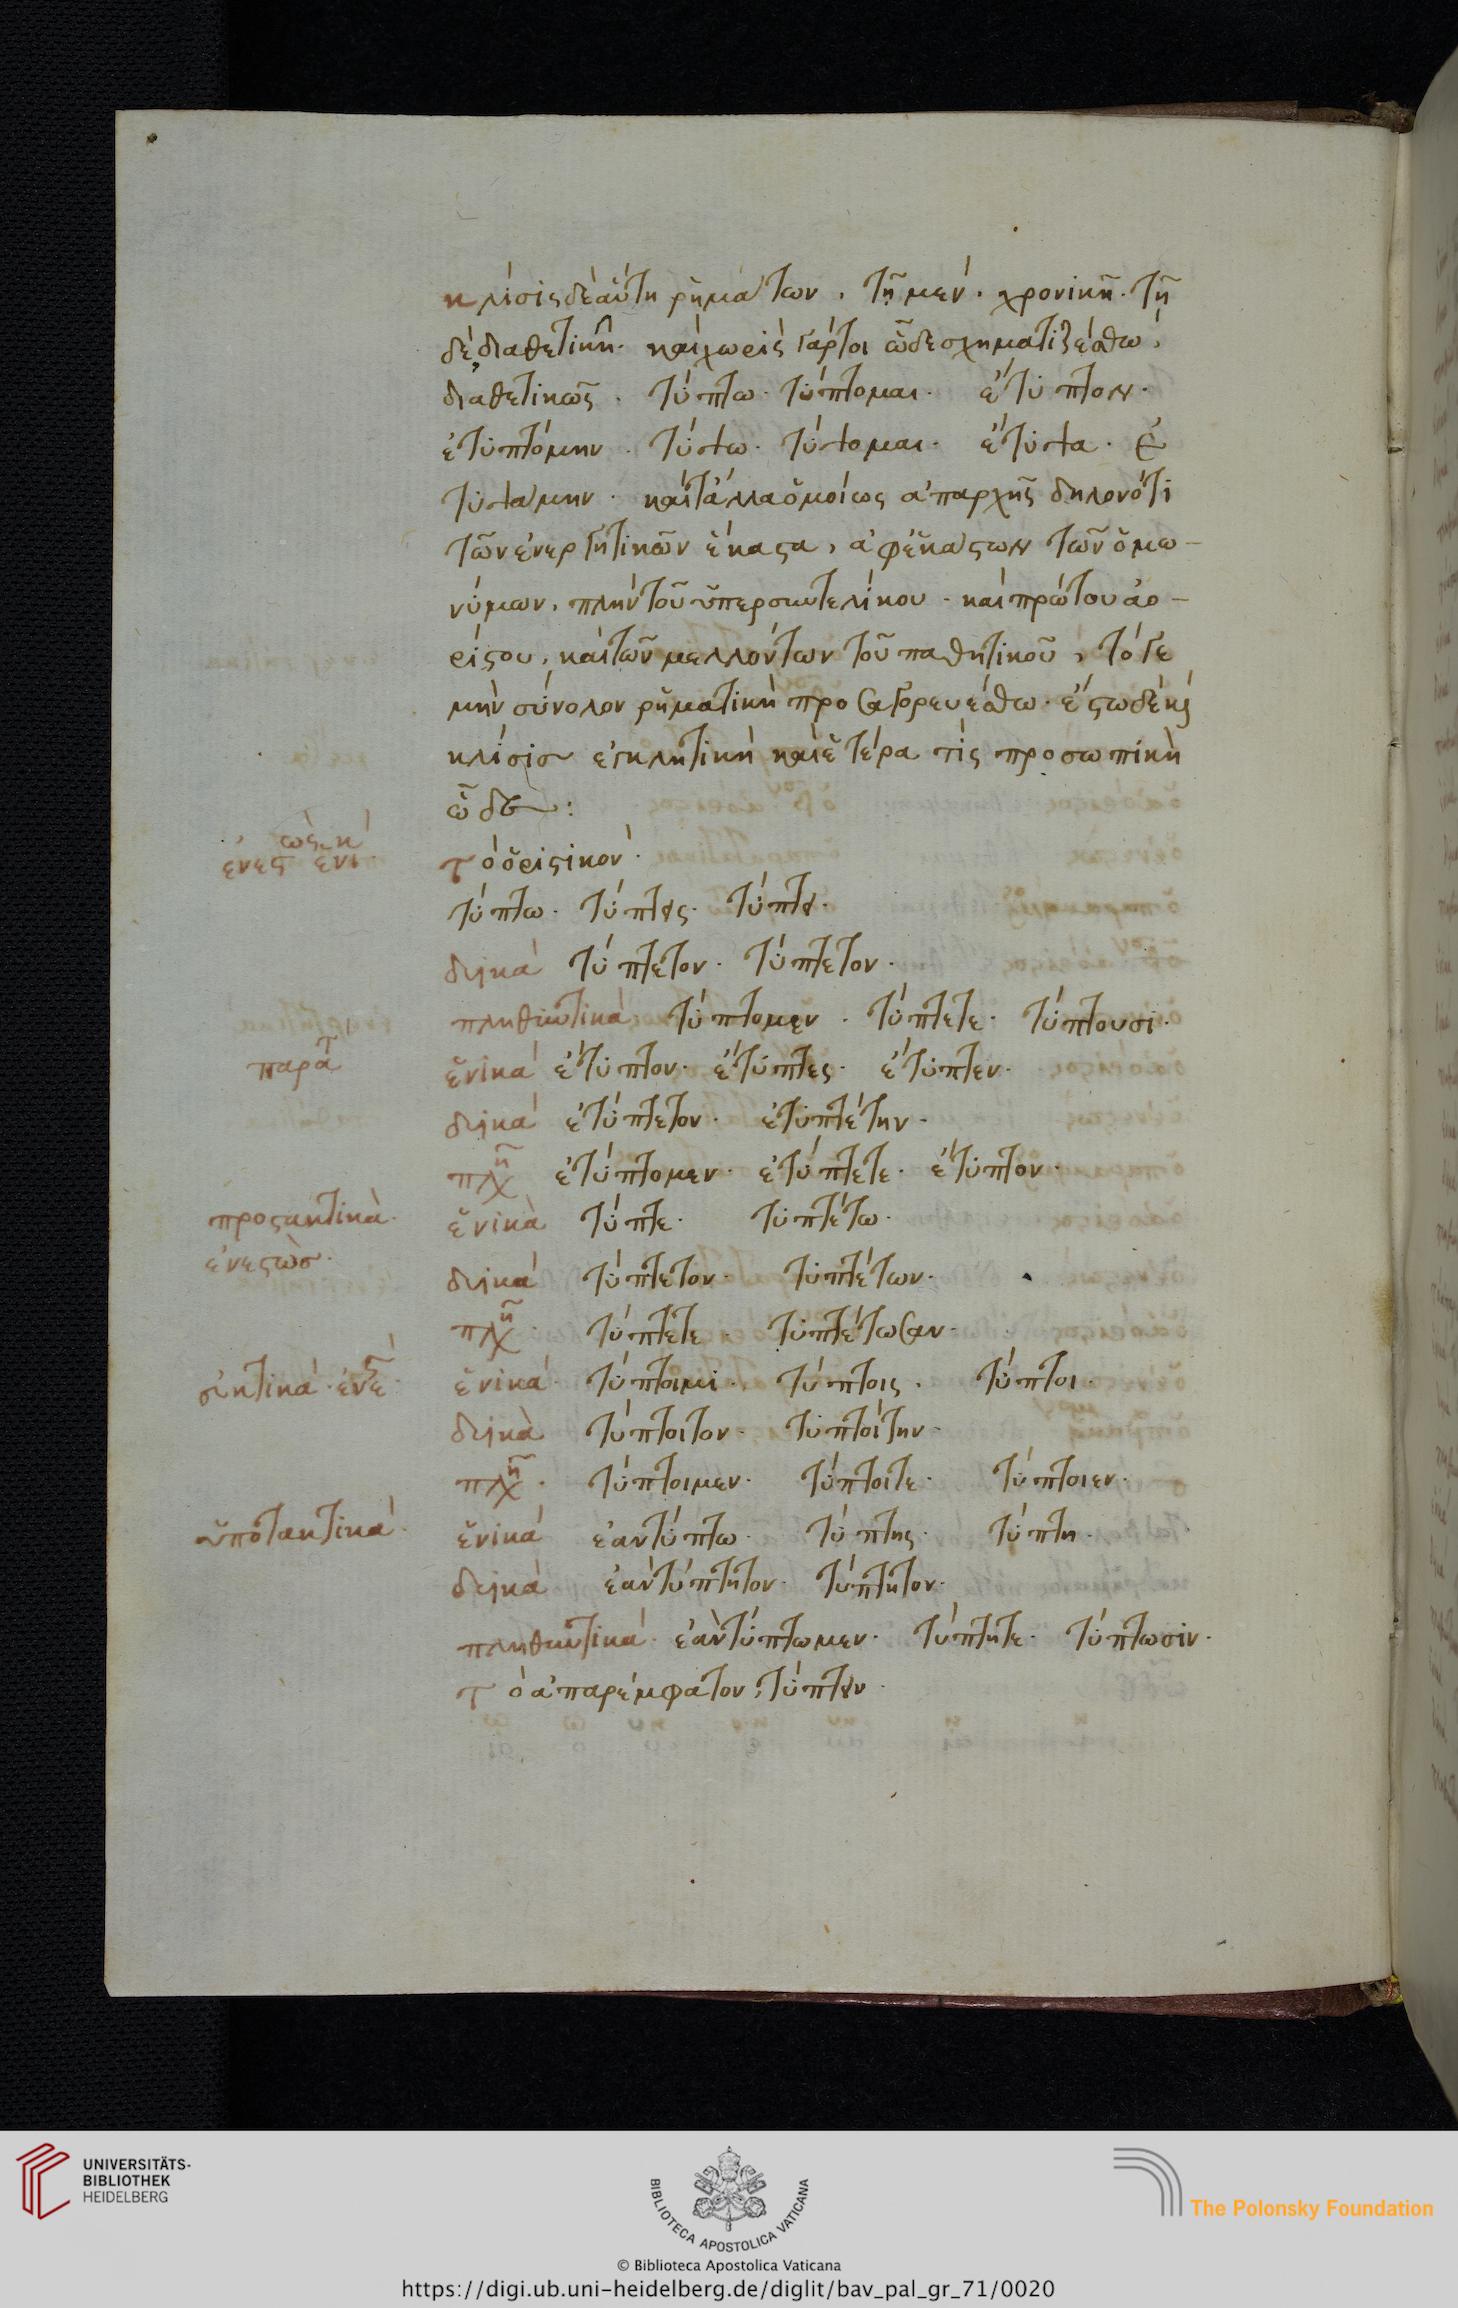 κλίσις δὲ αὕτη ῥημάτων. τῇ μὲν. χρονικῇ. τῇ
δὲ, διαθετικῇ. καὶ χωρὶς γάρ τοι ὧδε σχηματιζέσθω,
διαθετικῶς. τύπτω. τύπτομαι. ἔτυπτον.
ἐτυπτόμην. τύψω. τύψομαι. ἔτυψα. ἐ
τυψάμην. καὶ τἄλλα ὁμοίως ἀπαρχῆς δηλονότι
τῶν ἐνεργητικῶν ἕκαστα, ἀφ' ἑκάστων τῶν ὁμω-
νύμων. πλὴν τοῦ ὑπερσυντελίκου. καὶ πρώτου ἀο-
ρίστου, καὶ τῶν μελλόντων τοῦ παθητικοῦ, τό γε
μὴν σύνολον ῥηματικὴ προσαγορευέσθω. ἔστω δὲ καὶ
κλίσις ἐγκλητικὴ καὶ ἑτέρα τίς προσωπικὴ
ὧδε:
ἐνεστὼς ἑνικ
τὸ ὁριστικόν.
τύπτω. τύπτεις. τύπτει.
δυικὰ τύπτετον. τύπτετον.
πληθυντικὰ τύπτομεν. τύπτετε. τύπτουσι.
παρατ
ἑνικὰ ἔτυπτον. ἔτυπτες. ἔτυπτεν.
δυικὰ ἐτύπτετον. ἐτυπτέτην.
πλη ἐτύπτομεν. ἐτύπτετε. ἔτυπτον.
προστακτικὰ.
ἐνεστὼσ.
ἑνικὰ τύπτε. τυπτέτω.
δυικὰ τύπτετον. τυπτέτων.
πλη. τύπτετε. τυπτέτωσαν.
εὐκτικά. ἐνεστ
ἑνικὰ. τύπτοιμι. τύπτοις. τύπτοι.
δυικὰ τύπτοιτον. τυπτοίτην.
πλη. τύπτοιμεν. τύπτοιτε. τύπτοιεν.
ὑποτακτικά.
ἑνικά ἐὰν τύπτω. τύπτης. τύπτη.
δυικὰ ἐὰν τύπτητον. τύπτητον.
πληθυντικά. ἐὰν τύπτωμεν. τύπτητε. τύπτωσιν.
τὸ ἀπαρέμφατον, τύπτειν.
UNIVERSITÄTS-
BIBLIOTHEK
HEIDELBERG
BIBLIOTECA APOSTOLICA VATICANA
The Polonsky Foundation
© Biblioteca Apostolica Vaticana
https://digi.ub.uni-heidelberg.de/diglit/bav_pal_gr_71/0020